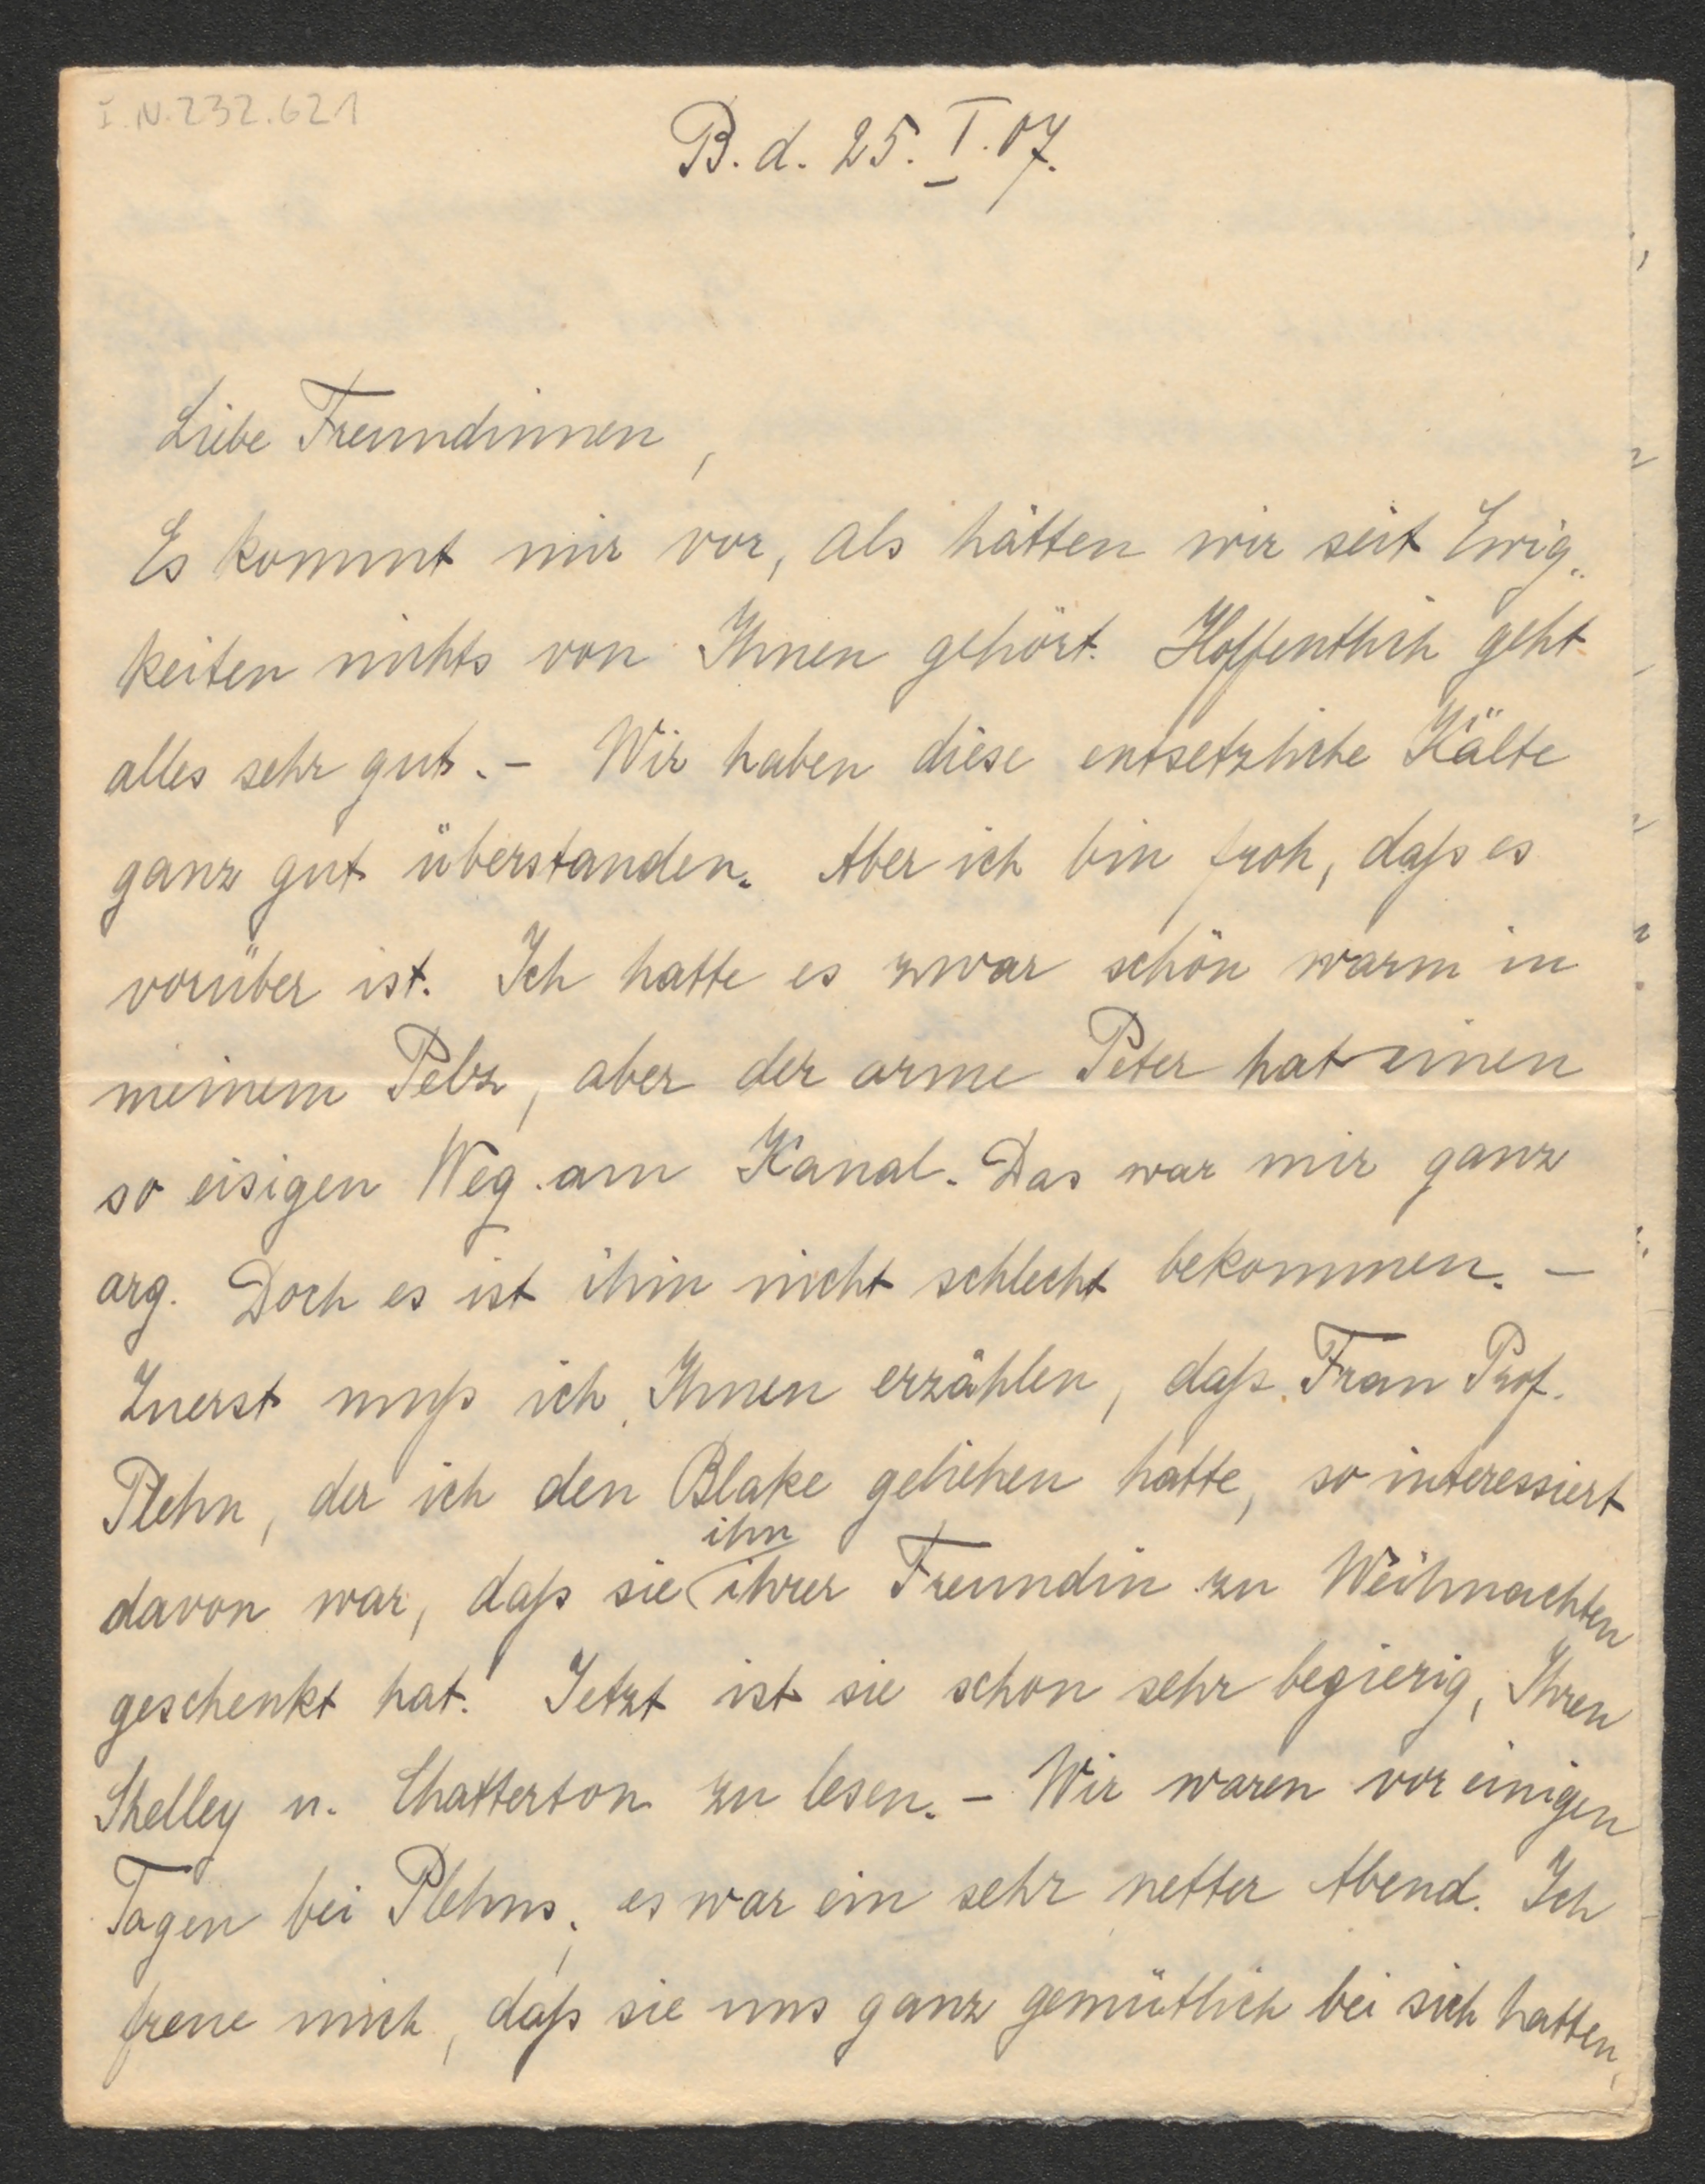 I.N.232.621
B. d. 25. I. 07.
Liebe Freundinnen,
Es kommt mir vor, als hätten wir seit Ewig-
keiten nichts von Ihnen gehört. Hoffentlich geht
alles sehr gut. – Wir haben diese entsetzliche Kälte
ganz gut überstanden. Aber ich bin froh, daß es
vorüber ist. Ich hatte es zwar schön warm in
meinem Pelz, aber der arme Peter hat einen
so eisigen Weg am Kanal. Das war mir ganz
arg. Doch es ist ihm nicht schlecht bekommen. –
Zuerst muß ich Ihnen erzählen, daß Frau Prof.
Plehn, der ich den Blake geliehen hatte, so interessiert
ihn
davon war, daß sie ihrer Freundin zu Weihnachten
geschenkt hat! Jetzt ist sie schon sehr begierig, Ihren
Shelley u. Chatterton zu lesen. – Wir waren vor einigen
Tagen bei Plehns; es war ein sehr netter Abend. Ich
freue mich, daß sie uns ganz gemütlich bei sich hatten,